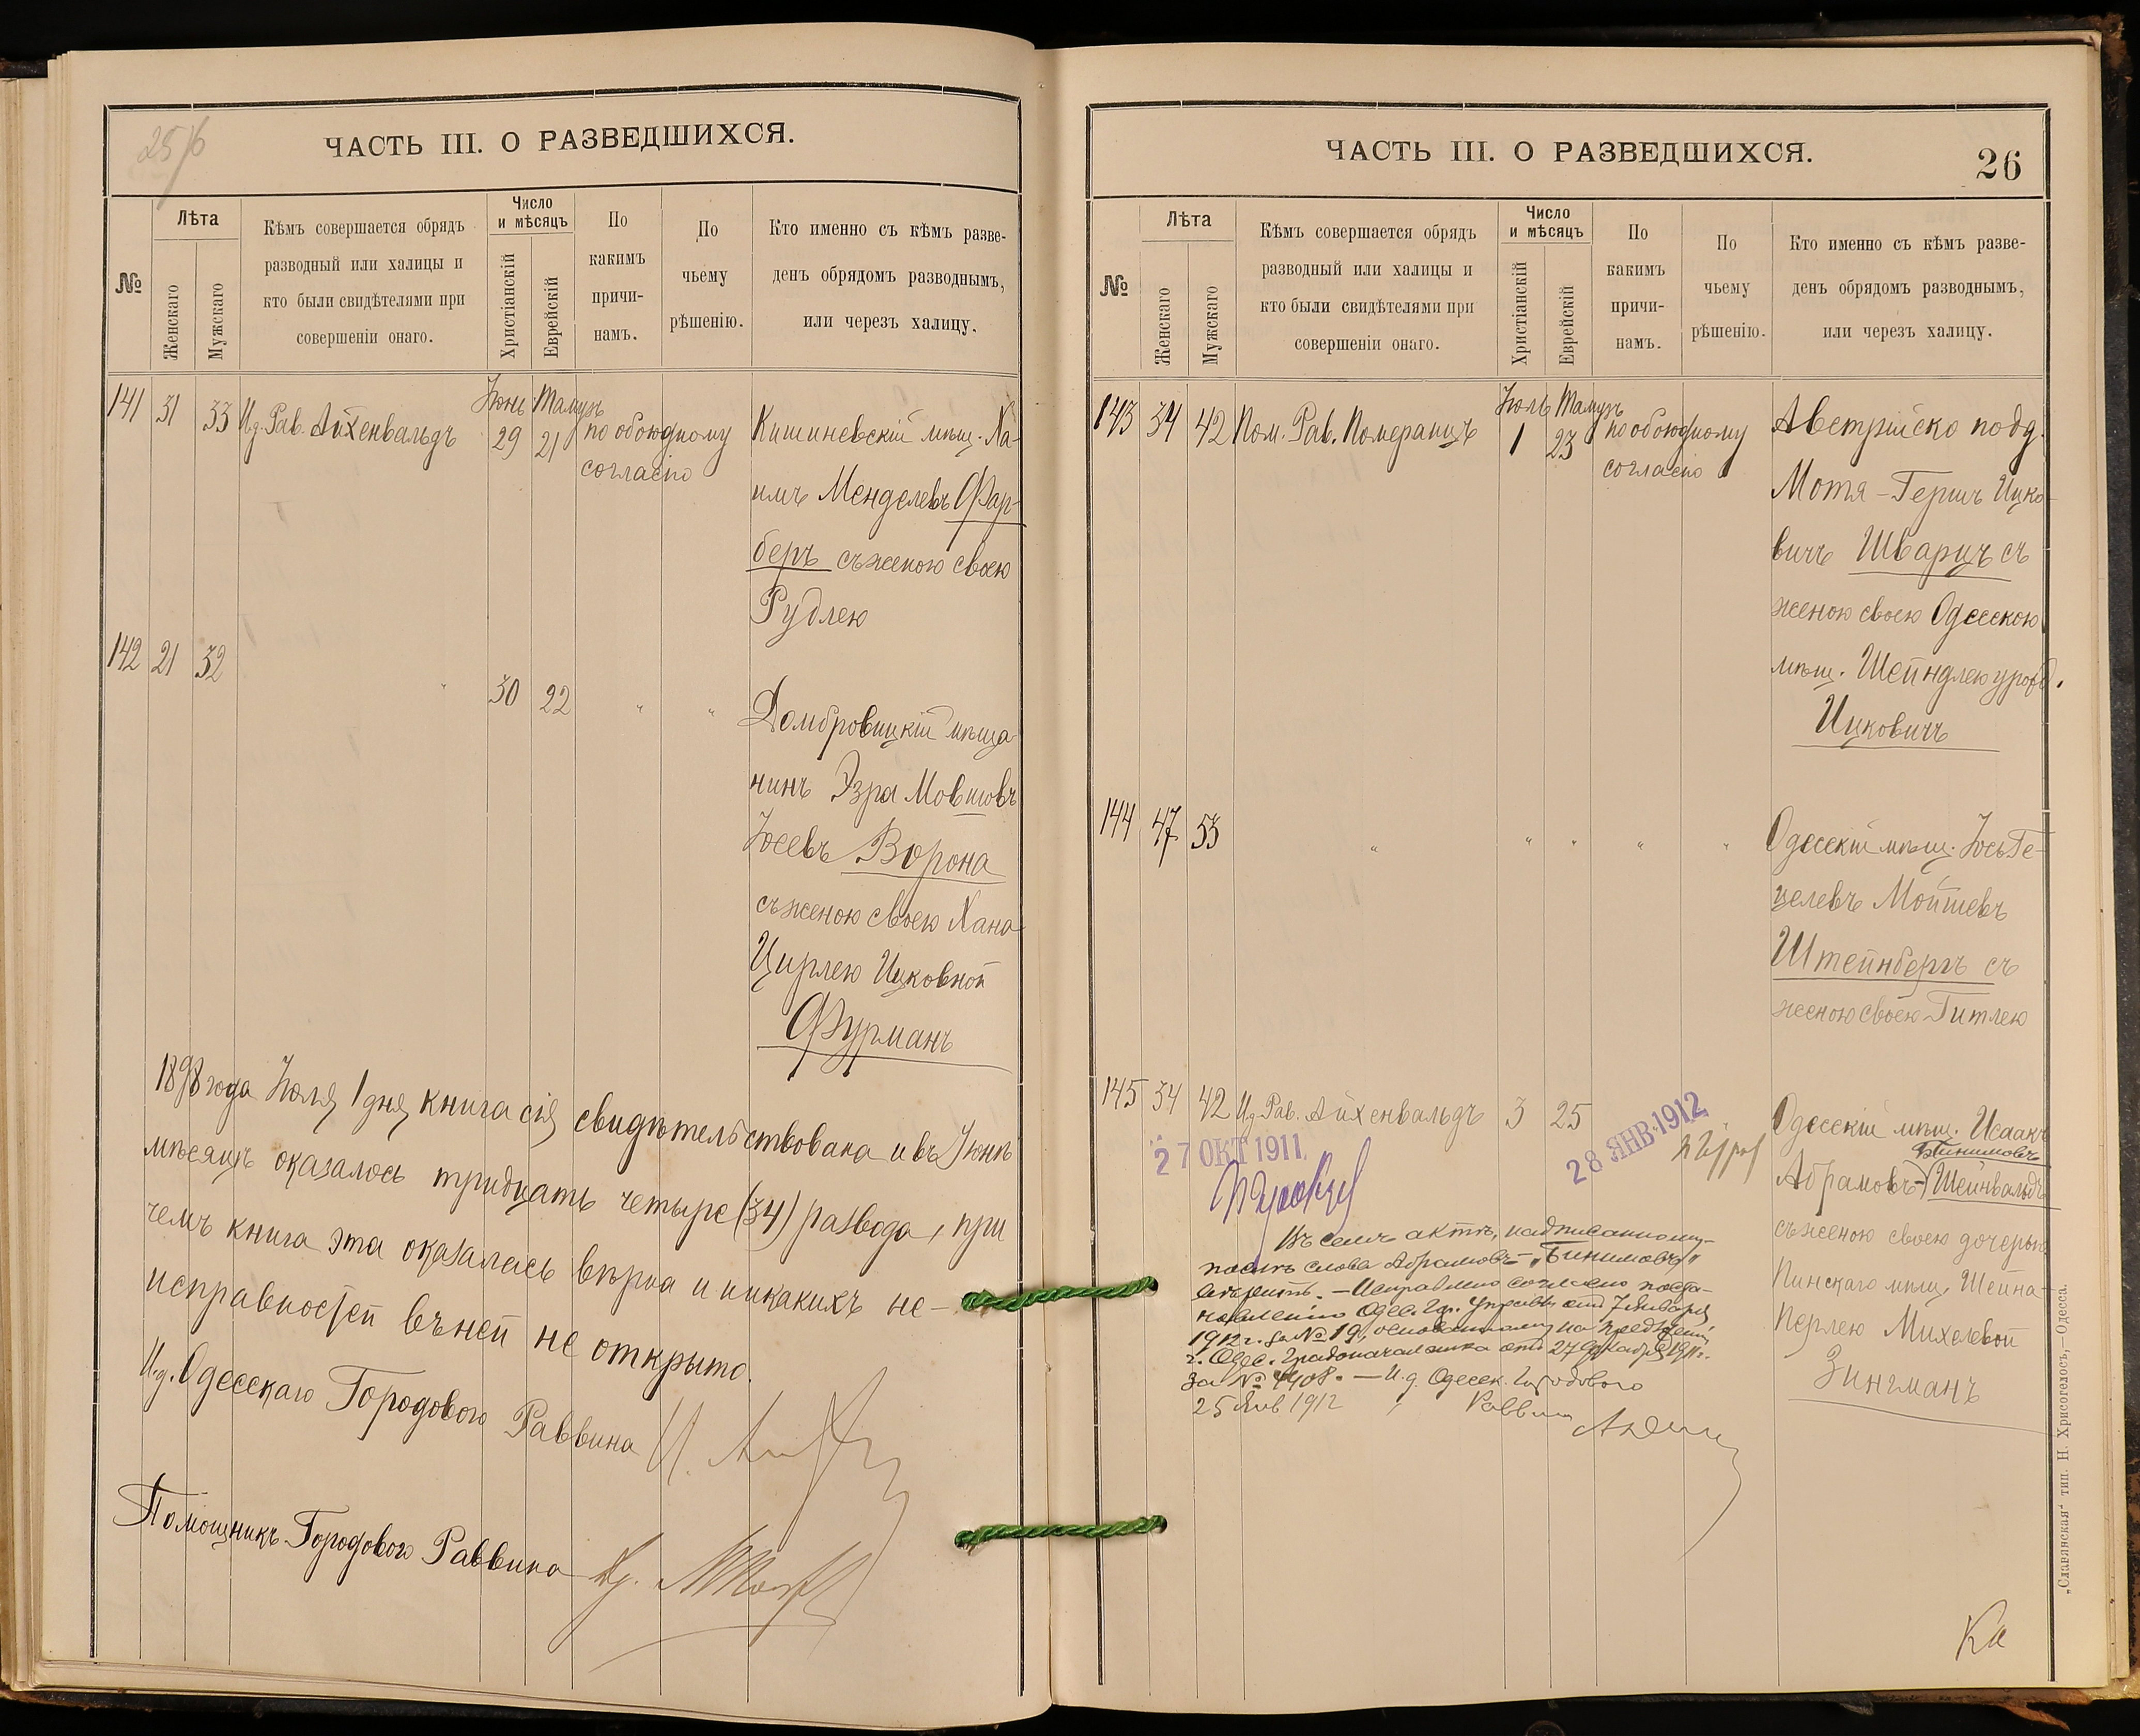 25/6
ЧАСТЬ III. О РАЗВЕДШИХСЯ.
№
Лѣта
Женскаго
Мужскаго
Кѣмъ совершается обрядъ
разводный или халицы и
кто были свидѣтелями при
совершеніи онаго.
Число
и мѣсяцъ
Христіанскій
Еврейскій
По
какимъ
причи-
намъ.
По
чьему
рѣшенію.
Кто именно съ кѣмъ разве-
денъ обрядомъ разводнымъ,
или черезъ халицу.
141 31 33 И.д. Рав. Айхенвальдъ
Іюнь Тамузъ
29 21
по обоюдному
согласію
Кишиневскій мѣщ. Ха-
имъ Менделевъ Фар-
беръ съ женою своею
Рудлею
142 21 32 " 30 22 " "
Домбровицкій мѣща
нинъ Эзра Мовшовъ
Іосевъ Ворона
съ женою своею Хана
Цирлею Ицковной
Фурманъ
1898 года Іюля 1 дня книга сія свидѣтельствована и въ Іюнѣ
мѣсяцѣ оказалось тридцать четыре (34) развода, при
чемъ книга эта оказалась вѣрна и никакихъ не-
исправностей въ ней не открыто.
И.д. Одесскаго Городового Раввина
Помощникъ Городового Раввина
ЧАСТЬ III. О РАЗВЕДШИХСЯ.
26
№
Лѣта
Женскаго
Мужскаго
Кѣмъ совершается обрядъ
разводный или халицы и
кто были свидѣтелями при
совершеніи онаго.
Число
и мѣсяцъ
Христіанскій
Еврейскій
По
какимъ
причи-
намъ.
По
чьему
рѣшенію.
Кто именно съ кѣмъ разве-
денъ обрядомъ разводнымъ,
или черезъ халицу.
143 34 42 Пом. Рав. Померанцъ
Іюль Тамузъ
1 23
по обоюдному
согласію
Австрійско подд.
Мотя-Гершъ Ицко-
вичъ Шварцъ съ
женою своею Одесскою
мѣщ. Шейндлею урожд.
Ицковичъ
144 47 53 " " " " "
Одесскій мѣщ. Іось Ге-
целевъ Мойшевъ
Штейнбергъ съ
женою своею Гитлею
145 34 42 И.д. Рав. Айхенвальдъ 3 25
27 ОКТ 1911
28 ЯНВ. 1912
Одесскій мѣщ. Исаакъ
Бинимовъ
Абрамовъ-Шейнвальдъ
съ женою своею дочерью
Пинскаго мѣщ. Шейна-
Перлею Михелевой
Зингманъ
Въ семъ актѣ, надписанному
послѣ слова Абрамовъ - „Бинимовъ"
вѣрить. — Исправлено согласно поста-
новленію Одес. Гор. Управы отъ 7 Января
1912 г. за № 19, основанному на предложеніи
г. Одес. Градоначальника отъ 27 Декабря 1911 г.
За № 4408. — И.д. Одесск. Городового
25 Янв 1912 Раввина
„Славянская" тип. Н. Хрисогелосъ,—Одесса.